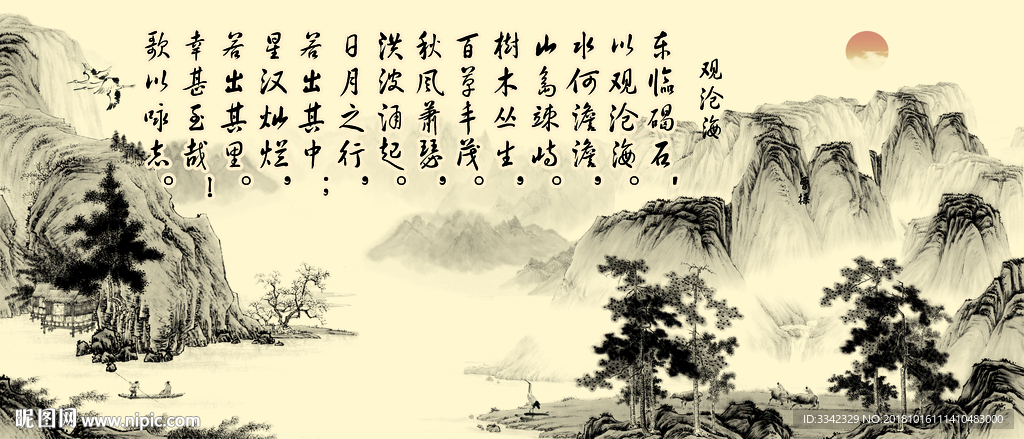 观沧海
曹操
东临碣石，
以观沧海。
水何澹澹，
山岛竦峙。
樹木丛生，
百草丰茂。
秋风萧瑟，
洪波涌起。
日月之行，
若出其中；
星汉灿烂，
若出其里。
幸甚至哉！
歌以咏志。
昵图网 www.nipic.com
ID:3342329 NO:20181016111410483000